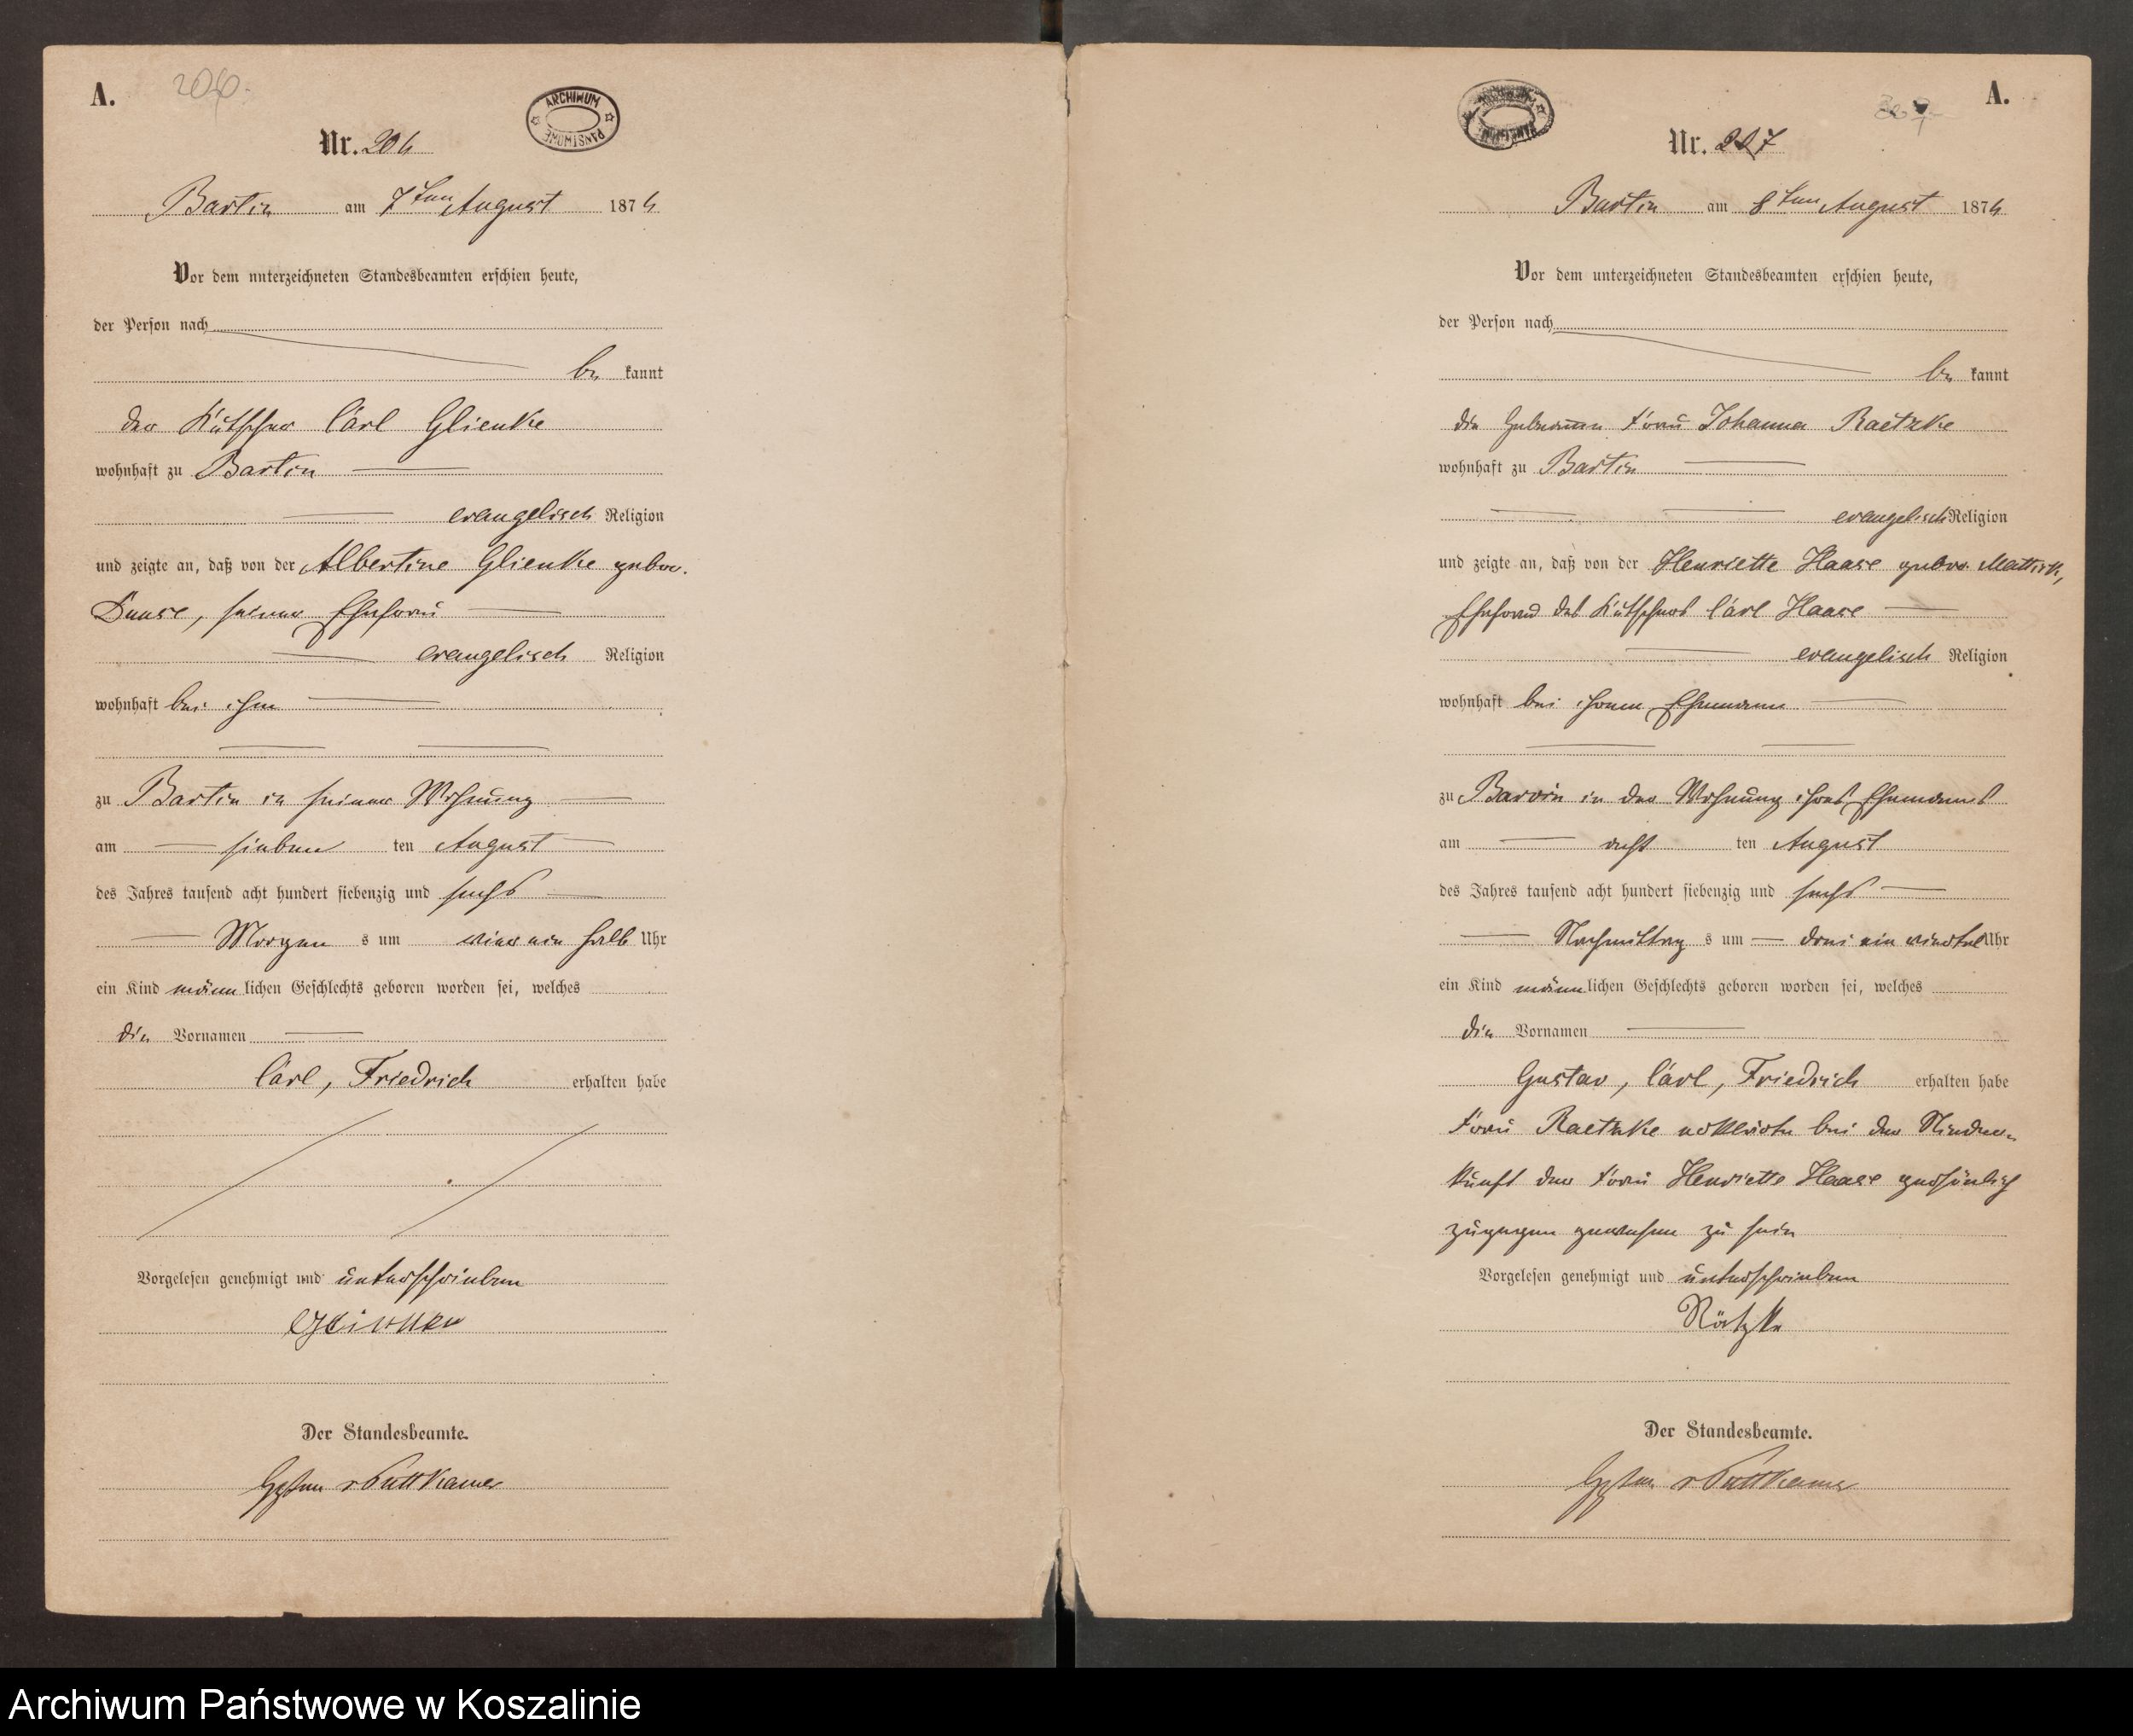 A.
206.
ARCHIWUM PAŃSTWOWE
Nr. 206
Bartin am 7ten August 1876
Vor dem unterzeichneten Standesbeamten erschien heute,
der Person nach
be kannt
der Kutscher Carl Glienke
wohnhaft zu Bartin
evangelisch Religion
und zeigte an, daß von der Albertine Glienke gebor.
seiner Ehefrau
evangelisch Religion
wohnhaft bei ihm
zu Bartin in seiner Wohnung
am sieben ten August
des Jahres tausend acht hundert siebenzig und sechs
Morgen s um ein halb Uhr
ein Kind männ lichen Geschlechts geboren worden sei, welches
die Vornamen
Carl, Friedrich erhalten habe
Vorgelesen genehmigt und unterschrieben
Glienke
Der Standesbeamte.
v Puttkamer
A.
Nr.
Bartin am 8ten August 1876
Vor dem unterzeichneten Standesbeamten erschien heute,
der Person nach
be kannt
die Hebamme Frau Johanna Raetzke
wohnhaft zu Bartin
evangelisch Religion
und zeigte an, daß von der Henriette Haase gebor.
Ehefrau des Kutschers Carl Haase
evangelisch Religion
wohnhaft bei ihrem Ehemann
zu Barvin in der Wohnung ihres Ehemanns
am acht ten August
des Jahres tausend acht hundert siebenzig und sechs
Nachmittag s um drei ein viertel Uhr
ein Kind männ lichen Geschlechts geboren worden sei, welches
die Vornamen
Gustav, Carl, Friedrich erhalten habe
Frau Raetzke erklärte bei der Nieder-
kunft der Frau Henriette Haase persönlich
zugegen gewesen zu sein
Vorgelesen genehmigt und unterschrieben
Rätzke
Der Standesbeamte.
v Puttkamer
Archiwum Państwowe w Koszalinie